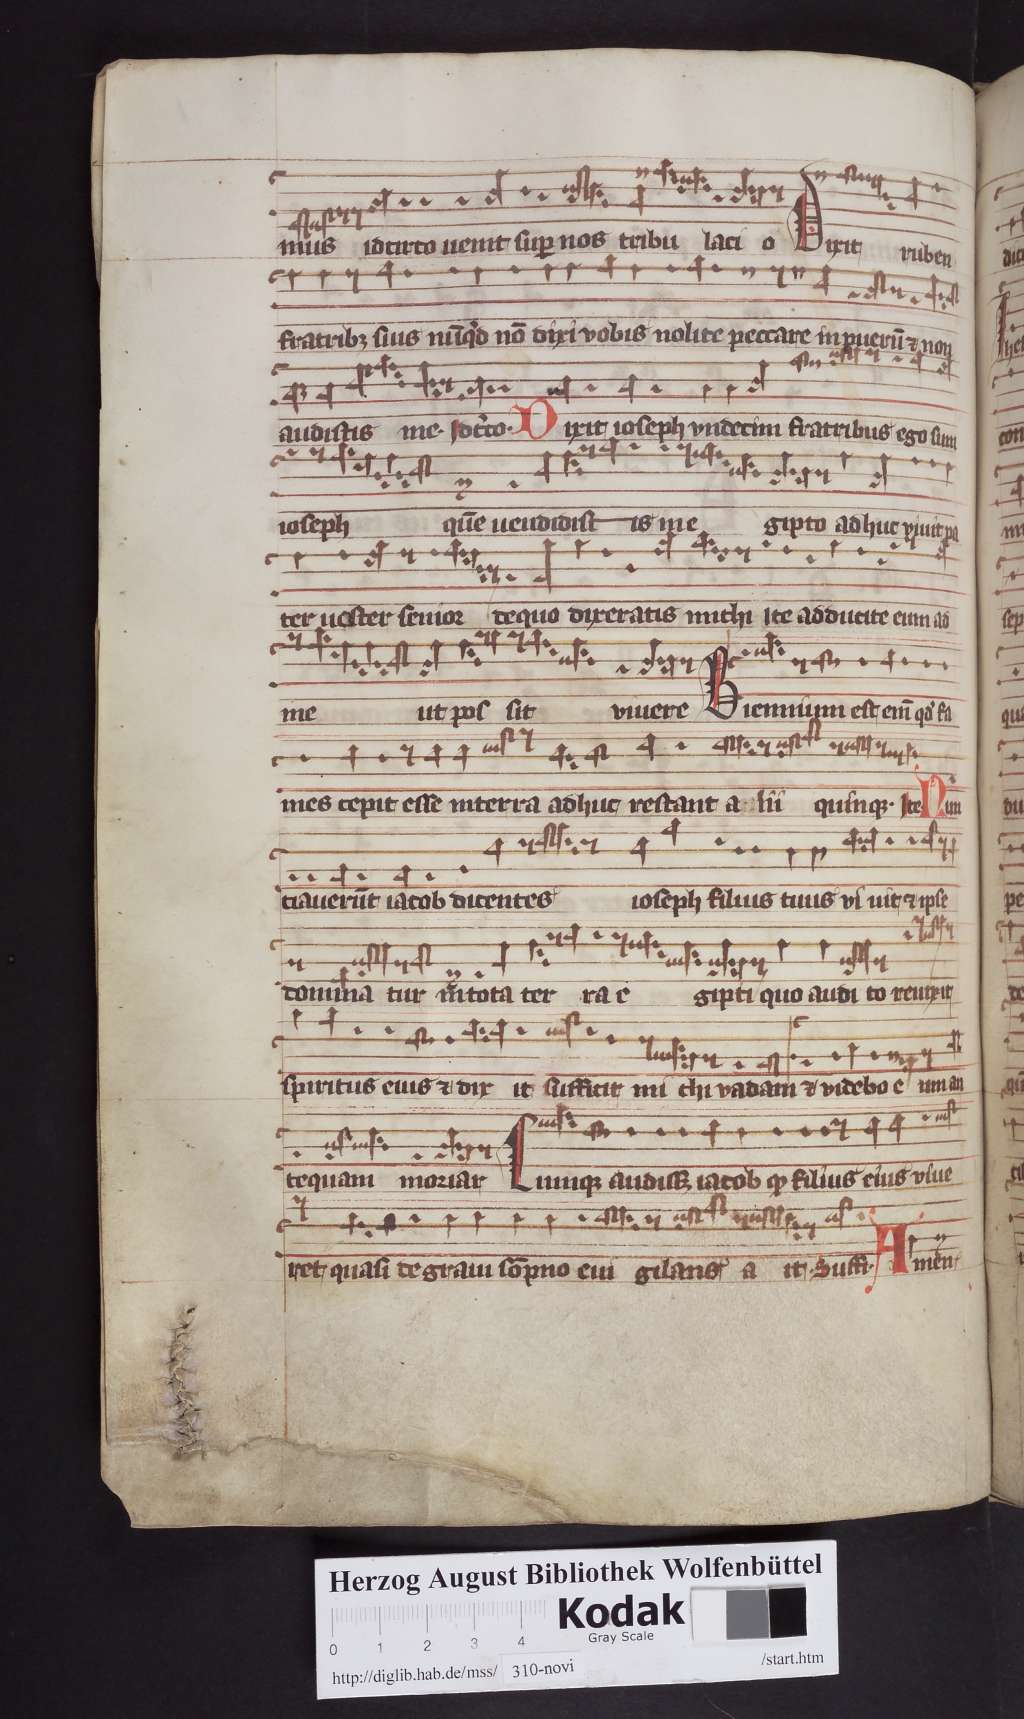 mus idcirco uenit sup nos tribu laci o Dixit ruben
fratribꝫ suis nūqͥd nō dixi vobis nolite peccare in puerū ⁊ non
audistis me. Idcͥco. Dixit ioseph vndecim fratribus ego sum
ioseph quē uendidist is in e gipto adhuc viuit pa
ter uester senior de quo dixeratis michi Ite adducite eum ad
me ut pos sit viuere Biennium est enī qͦd fa
mes cepit esse in terra adhuc restant a lii quinqꝫ. Ite Nun
ciauerūt iacob dicentes ioseph filius tuus vi uit ⁊ ipse
domina tur in tota ter ra e gipti quo audi to reuixit
spiritus eius ⁊ dix it sufficit mi chi vadam ⁊ videbo e um an
tequam moriar Cumqꝫ audissꝫ iacob ꝙ filius eius viue
ret quasi de graui sōpno eui gilans a it. Suffi. Amen
Herzog August Bibliothek Wolfenbüttel
Kodak
Gray Scale
0 1 2 3 4
http://diglib.hab.de/mss/ 310-novi /start.htm